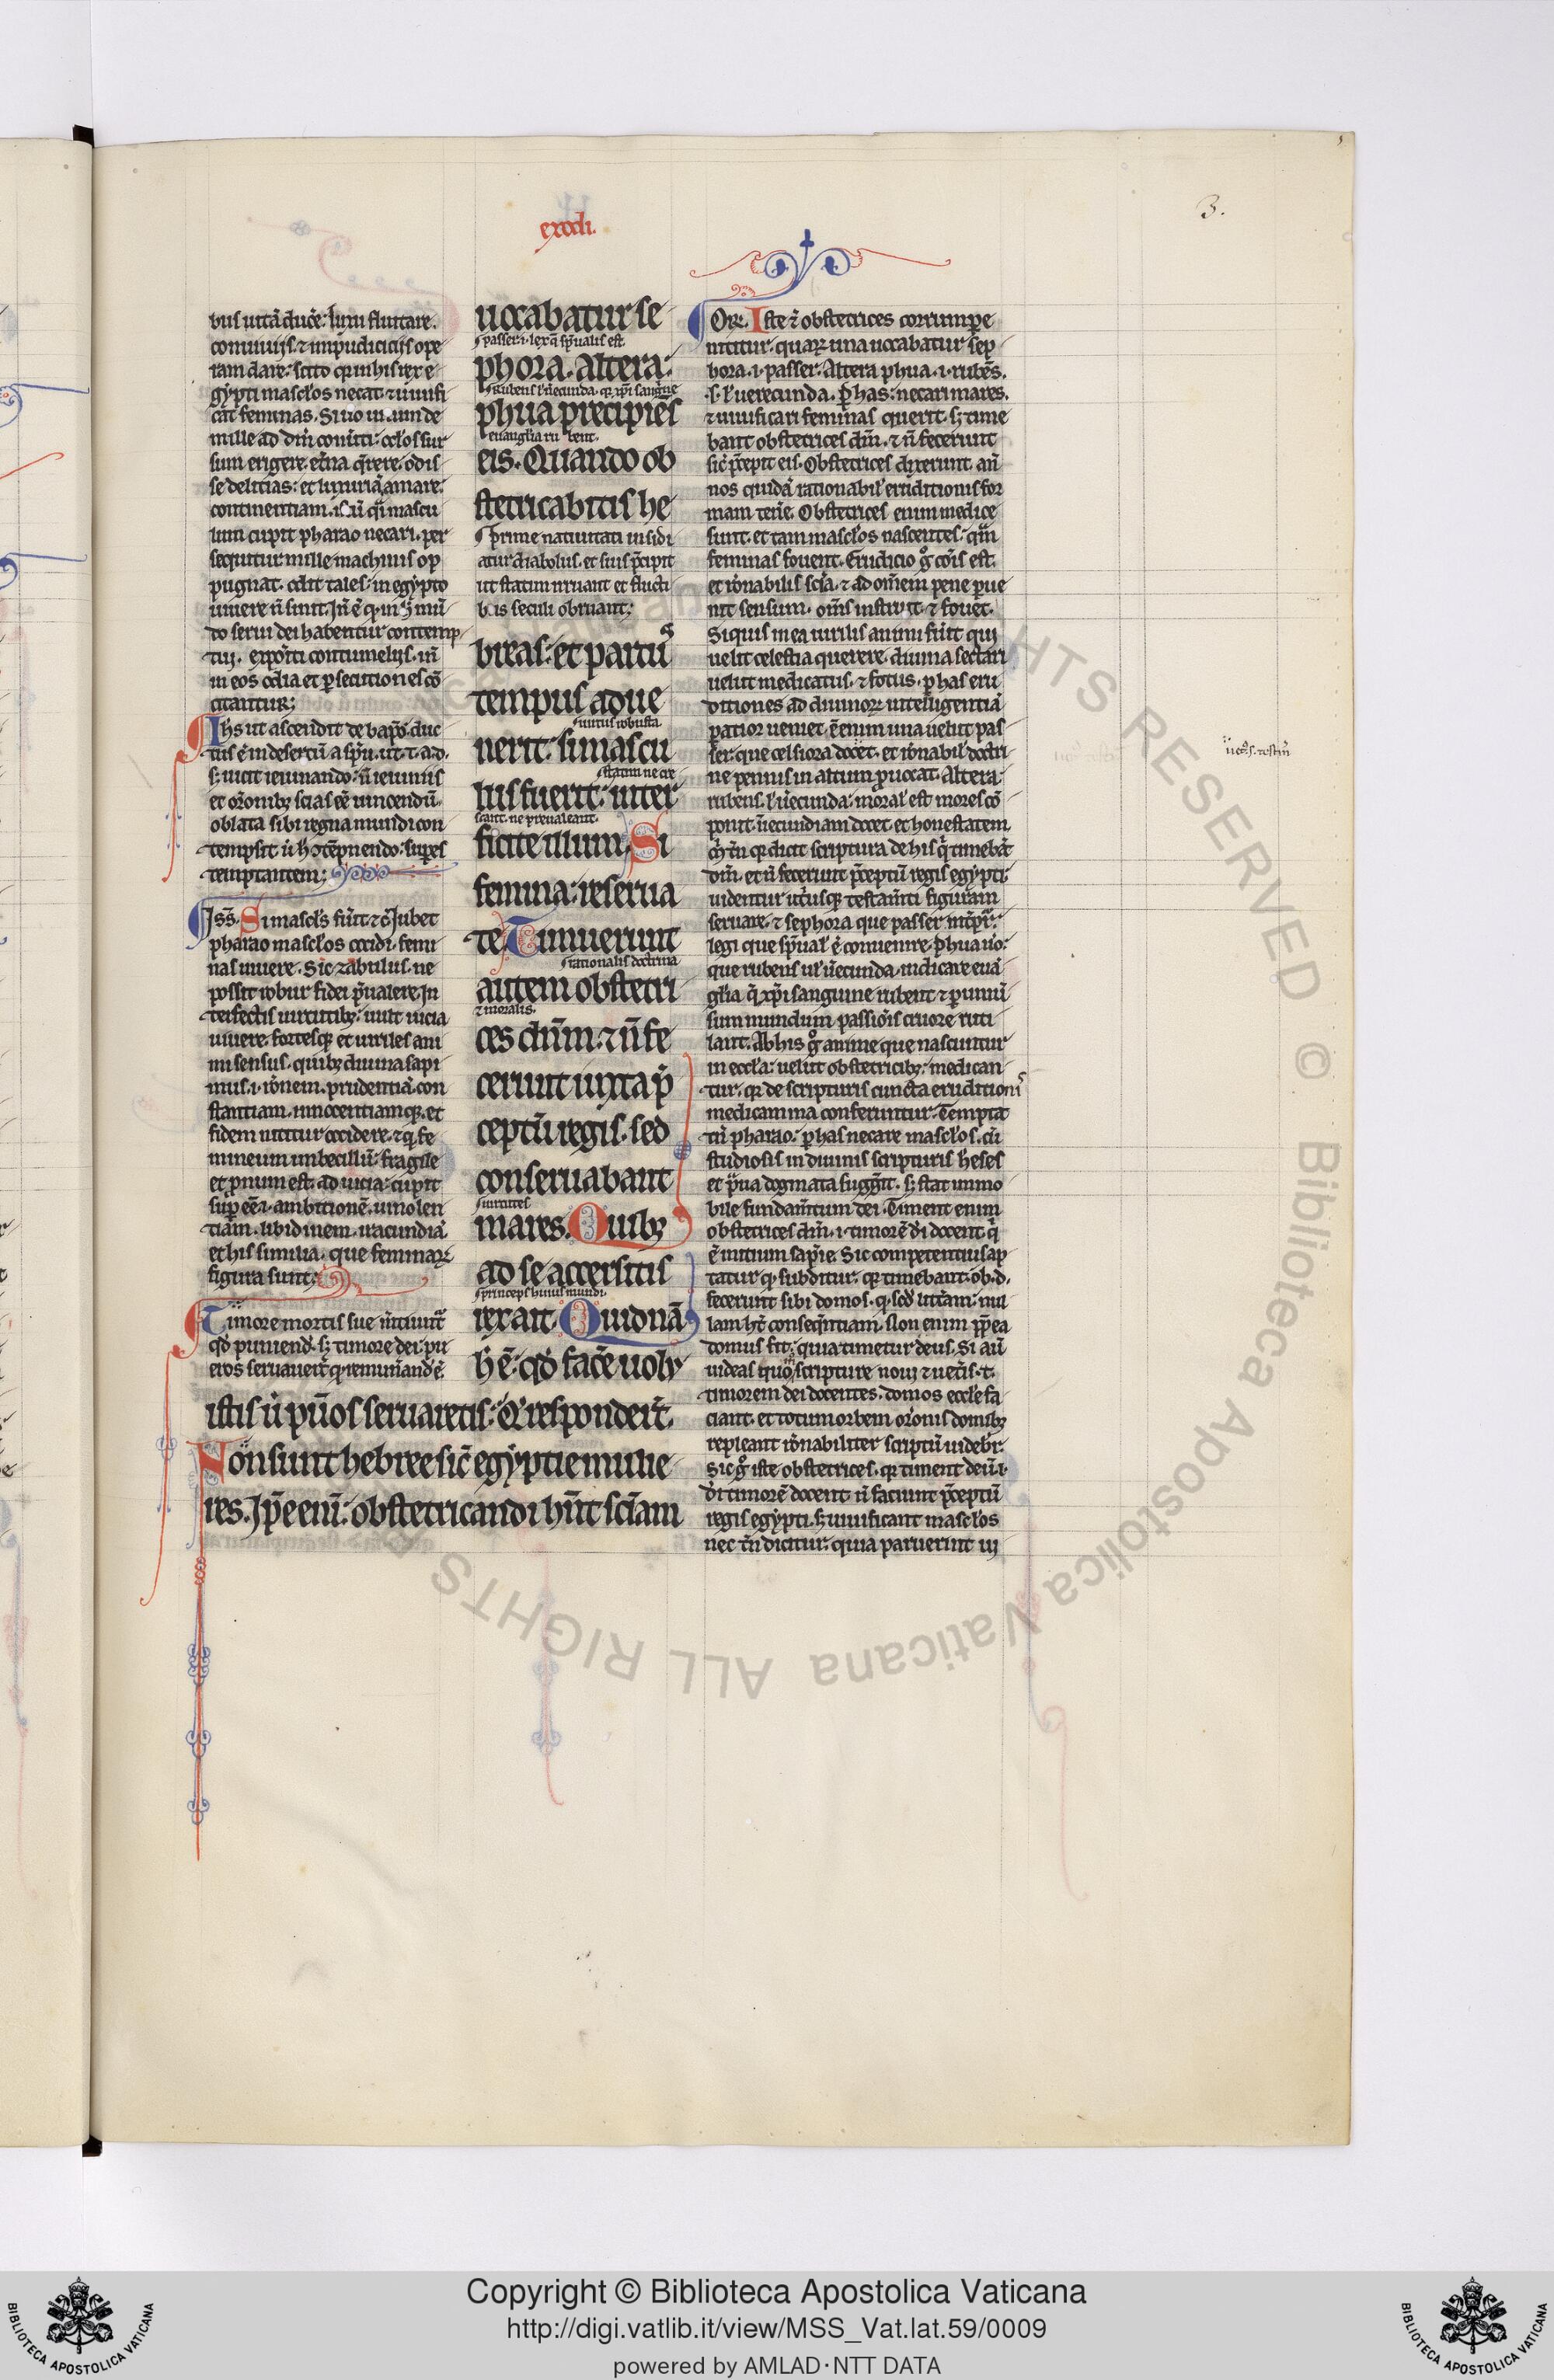 exodi.
3.
bus uitā ducē: luxu fluitare.
conuiuijs. ⁊ impudicicijs ope
ram dare: scito qꝛ in his rex e
gypti mascłos necat. ⁊ uiuifi
cat feminas. Si uo
mille ad dm̄ conuti: oclos sur
sum erigere. et̄na q̄rere. odis
se delitias: et luxuriā. amare.
continentiam.
lum cupit pharao necari. per
sequitur mille machinis op
pugnat. odit tales: in egypto
uiuere n̄ sinit. Jn̄ ē ꝙ in h̄ mū
do serui dei habentur contemp
tui. expoīti contumelijs. in̄
in eos odia et ꝑsecutiones cō
citantur;
Ihs ut ascendit de baꝑ. duc
tus ē in desertū a spū. ut. t. a. d.
sꝫ uicit ieiunando: ū ieiuniis
et orōnibꝫ scias eē uincendū.
oblata sibi regna mundi con
tempsit
temptantem;
Iss̄. Si mascłs fūit ⁊c̄ Jubet
pharao mascłos occidi. femi
nas uiuere. Sic zabulus. ne
possit robur fidei p̄ualere. In
terfectis uirtutibꝫ: uult uicia
uiuere. fortesqꝫ et uiriles ani
mi sensus. quibꝫ diuina sapi
mus .i. rōnem. prudentiā. con
stantiam. innocentiamqꝫ. et
fidem nititur occidere. ⁊ qꝫ fe
mineum imbecillū: fragile
et ꝓnum est. ad uicia: cupit
suꝑ eē .i. ambitionē. uiolen
tiam. libidinem. iracundiā
et his similia. que feminaꝝ
figura sunt;
Timore mortis sue
qd̄ puniend̄. sꝫ timore dei: pu
eros seruauer̄t
uocabatur se
passer .i. lex q̄ sp̄ualis est
phora. Altera:
rubens ł ūecunda. qꝛ xp̄i sangꝯne
phua precipiēs
euanglia ru bent.
eis. Quando ob
stetricabitis he
prime natiuitati insidi
atur diabolus. et suis p̄cipit
ut statim irruant et flucti
b is seculi obruant;
breas: et partuˢ
tempus adue
uirtus robusta
nerit: si mascu
statim ne cre
lus fuerit: inter
scant. ne preualeant.
ficite illum. Si
femina: reserua
te Timuerunt
rationalis doctrina
autem obstetri
⁊ moralis.
ces dn̄m. ⁊ n̄ fe
cerunt iuxta p̄
ceptū regis. sed
conseruabant
uirtutes
mares. Quibꝫ
ad se accersitis
princeps huius mundi.
rex ait. Quidnā
h̄ ē: qd̄ facē uoluˢ
istis ū pūos seruaretis: Q̄ respondeīt.
Non sunt hebree sic̄ egyptie mulie
res. Jp̄e enī: obstetricandi hn̄t sciam
Oꝝ. Iste ⁊ obstetrices corrumpe
nititur. quaꝝ una uocabatur sep
hora .i. passer. Altera phua .i. rubēs.
.s. ł uerecunda. ꝑ has: necari mares.
⁊ uiuificari feminas querit. sꝫ time
bant obstetrices dm̄. ⁊ n̄ fecerunt
sic̄ p̄cepit eis. Obstetrices dixerunt an̄
nos quidā rationabił eruditionis for
mam tene. Obstetrices enim medice
sunt. et tam mascłos nascentes: qm̄
feminas fouent. Erudicio g̊ cōis est.
et rōnabilis scia. ⁊ ad oīnem pene ꝑue
nit sensum. oms̄ instruit ⁊ fouet.
Siquis in ea uirilis animi fūit qui
uelit celestia querere. diuina sectari
uelut medicatus. ⁊ fotus. ꝑ has eru
ditiones ad diuinoꝝ intelligentiā
patior ueniet. ē enim una uelut pas
ser. que celsiora docet. et rōnabił doctri
ne pennis in altum prouocat. Altera:
rubens. ł ūecunda: morał est. mores cō
ponit. ūecundiam docet. et honestatem
M̄ tn̄ qꝛ dicit scriptura de his q̄ timebāt
dm̄. et n̄ fecerunt p̄ceptū regis egypti:
uidentur ut̄usqꝫ testam̄ti figuram
seruare. ⁊ sephora que passer
legi que sp̄ual ē conuenire. Phua uo:
que rubens uł ūecunda. indicare euā
glia q̄ xp̄i sanguine rubent. ⁊ ꝑ uniū
sum mundum. passiōis cruore ruti
lant. Ab his g̊ anime que nascuntur
in eccła: uelut obstetricibꝫ: medican
tur. qꝛ de scripturis cuncta eruditionis
medicamina conferuntur. Tempta
tū pharao: ꝑ has necare mascłos. cū
studiosis in diuinis scripturis heses
et p̄ua dogmata suggit. sꝫ stat immo
bile fundam̄tum dei. Timent enim
obstetrices dm̄ .i. timorē di docent q̄
ē initium sapīe. Sic competentius ap
tatur ꝙ subditur. qꝛ timebant. ob. d.
fecerunt sibi domos. ꝙ. scd̄ litt̄am. nul
lam hꝫ conseqn̄tiam. Non enim ꝓp̄ea
domus fit: quia timetur deus. Si aū
uideas quō scripture noui ⁊ uet̄is. t.
timorem dei docentes. domos eccłe fa
ciant. et totum orbem orōnis domibꝫ
repleant. rōnabiliter scriptū uidebr̄.
Sic g̊ iste obstetrices. qꝛ timent deū .i.
di timorē docent. n̄ faciunt p̄ceptū
regis egypti. sꝫ uiuificant mascłos
nec tn̄ dicitur: quia paruerint iu
Copyright © Biblioteca Apostolica Vaticana
http://digi.vatlib.it/view/MSS_Vat.lat.59/0009
powered by AMLAD·NTT DATA
BIBLIOTECA APOSTOLICA VATICANA
BIBLIOTECA APOSTOLICA VATICANA
© Biblioteca Apostolica Vaticana ALL RIGHTS RESERVED